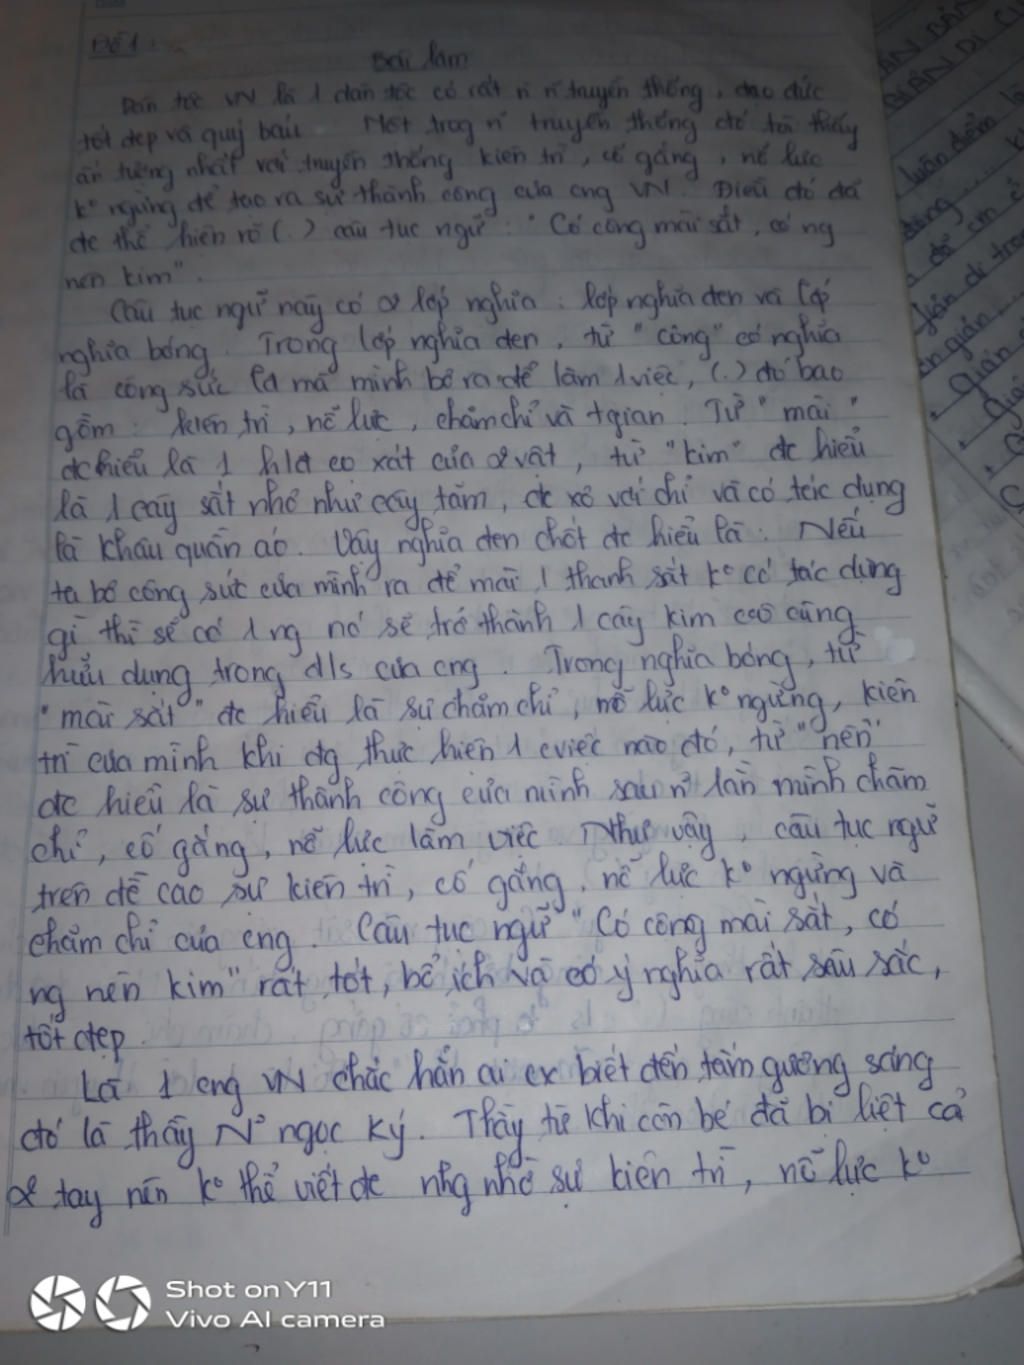 Đề 1:
Bài làm
Dân tộc VN là 1 dân tộc có rất n n truyền thống, đạo đức
tốt đẹp và quý báu. Một trog n truyền thống đó tôi thấy
ấn tượng nhất với truyền thống kiên trì, cố gắng, nỗ lực
kº ngừng để tạo ra sự thành công của cng VN. Điều đó đã
đc thể hiện rõ (.) câu tục ngữ: "Có công mài sắt, có ng
nên kim".
Câu tục ngữ này có 2 lớp nghĩa: lớp nghĩa đen và lớp
nghĩa bóng. Trong lớp nghĩa đen, từ "công" có nghĩa
là công sức lđ mà mình bỏ ra để làm 1 việc, (.) đó bao
gồm: kiên trì, nỗ lực, chăm chỉ và tgian. Từ "mài"
đc hiểu là 1 hđ cọ xát của 2 vật, từ "kim" đc hiểu
là 1 cây sắt nhỏ như cây tăm, đc xỏ với chỉ và có tác dụng
là khâu quần áo. Vậy nghĩa đen chốt đc hiểu là: Nếu
ta bỏ công sức của mình ra để mài 1 thanh sắt kº có tác dụng
gì thì sẽ có 1 ng nó sẽ trở thành 1 cây kim cũng
hữu dụng trong đ/s của cng. Trong nghĩa bóng, từ
"mài sắt" đc hiểu là sự chăm chỉ, nỗ lực kº ngừng, kiên
trì của mình khi đg thực hiện 1 cviệc nào đó, từ "nên"
đc hiểu là sự thành công của mình sau n lần mình chăm
chỉ, cố gắng, nỗ lực làm việc. Như vậy, câu tục ngữ
trên đề cao sự kiên trì, cố gắng, nỗ lực kº ngừng và
chăm chỉ của cng. Câu tục ngữ "Có công mài sắt, có
ng nên kim" rất tốt, bổ ích và có ý nghĩa rất sâu sắc,
tốt đẹp.
Là 1 cng VN chắc hẳn ai cx biết đến tấm gương sáng
đó là thầy Nº ngọc Ký. Thầy từ khi còn bé đã bị liệt cả
2 tay nên kº thể viết đc nhg nhờ sự kiên trì, nỗ lực kº
Shot on Y11
Vivo AI camera